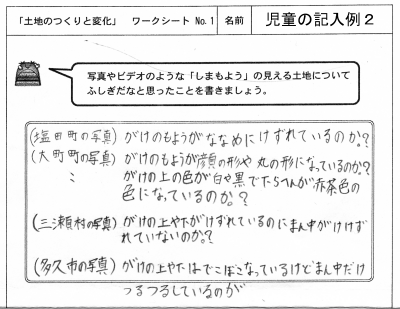 「土地のつくりと変化」 ワークシート No.1 名前 児童の記入例２
写真やビデオのような「しまもよう」の見える土地について
ふしぎだなと思ったことを書きましょう。
(塩田町の写真) がけのもようがななめにけずれているのか？
(大町町の写真) がけのもようが顔の形や丸の形になっているのか？
〃 がけの上の色が白や黒でたらへんが赤茶色の
色になっているのか？
(三瀬村の写真) がけの上や下がけずれているのにまん中がけず
れていないのか？
(多久市の写真) がけの上や下はでこぼこなっているけどまん中だけ
つるつるしているのが